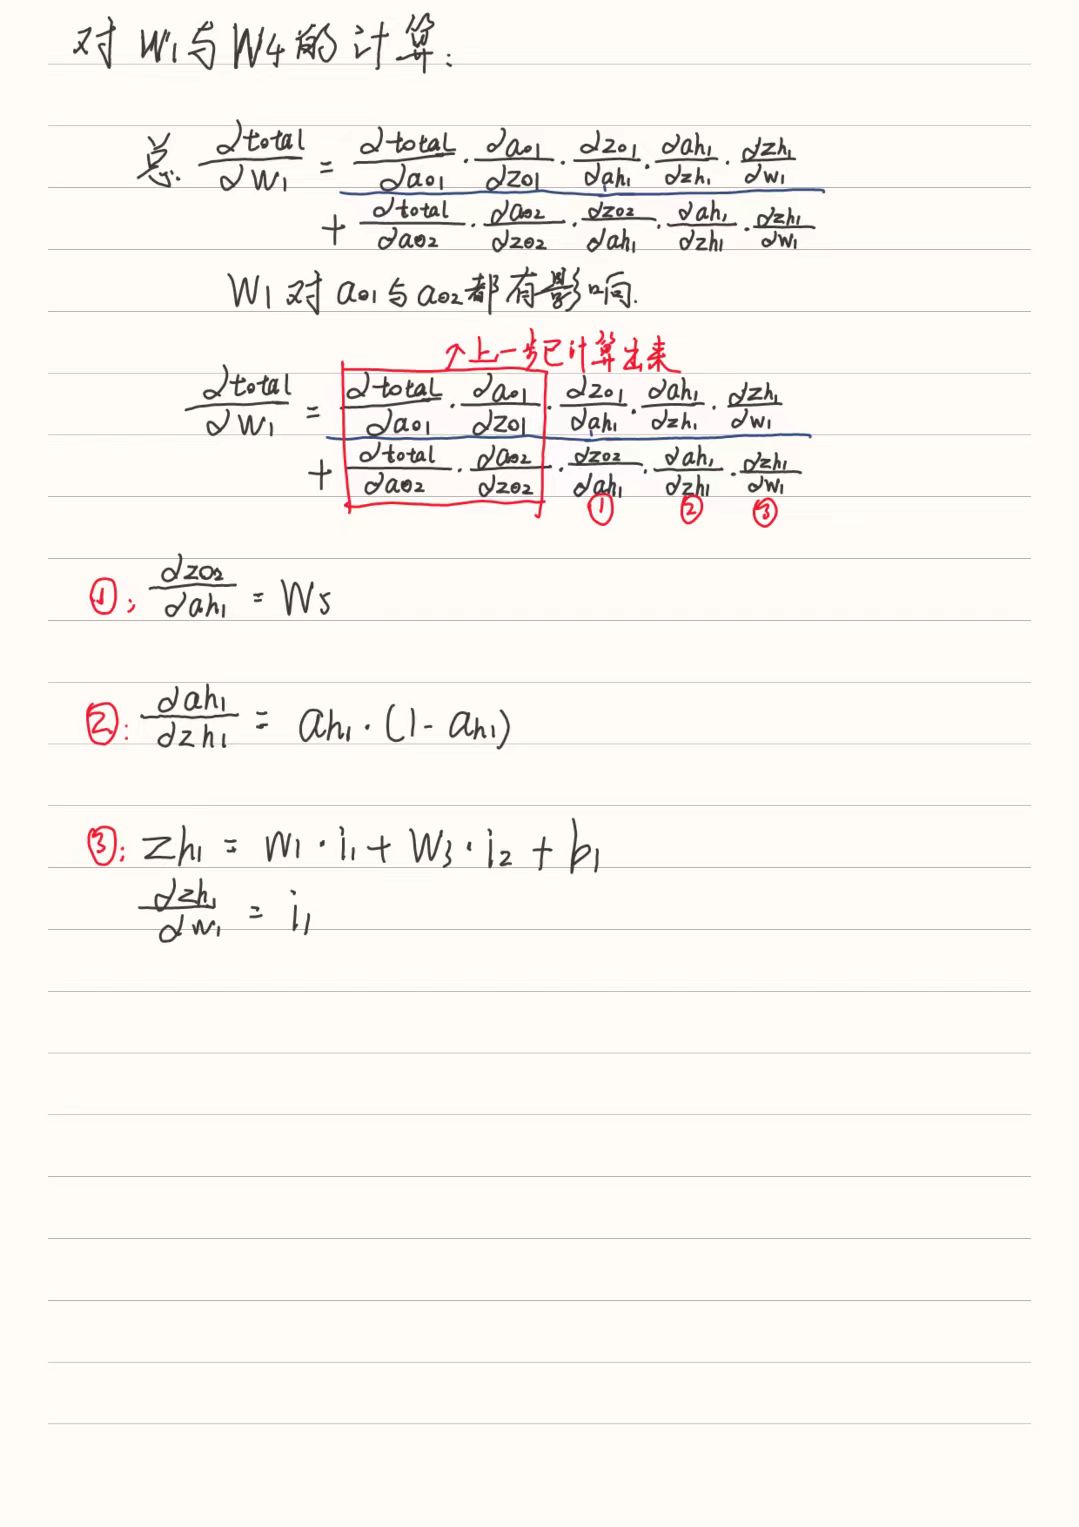 对 W₁与W4的计算:
总. ∂total/∂W₁ = ∂total/∂ao1 · ∂ao1/∂zo1 · ∂zo1/∂ah₁ · ∂ah₁/∂zh₁ · ∂zh₁/∂w₁
+ ∂total/∂ao2 · ∂ao2/∂zo2 · ∂zo2/∂ah₁ · ∂ah₁/∂zh₁ · ∂zh₁/∂w₁
W₁对ao1与ao2都有影响.
↑上一步已计算出来
∂total/∂W₁ = ∂total/∂ao1 · ∂ao1/∂zo1 · ∂zo1/∂ah₁ · ∂ah₁/∂zh₁ · ∂zh₁/∂w₁
+ ∂total/∂ao2 · ∂ao2/∂zo2 · ∂zo2/∂ah₁ · ∂ah₁/∂zh₁ · ∂zh₁/∂w₁
① ② ③
①; ∂zo2/∂ah₁ = W5
②: ∂ah₁/∂zh₁ = ah₁ · (1 - ah₁)
③: zh₁ = W₁ · i₁ + W3 · i₂ + b₁
∂zh₁/∂w₁ = i₁